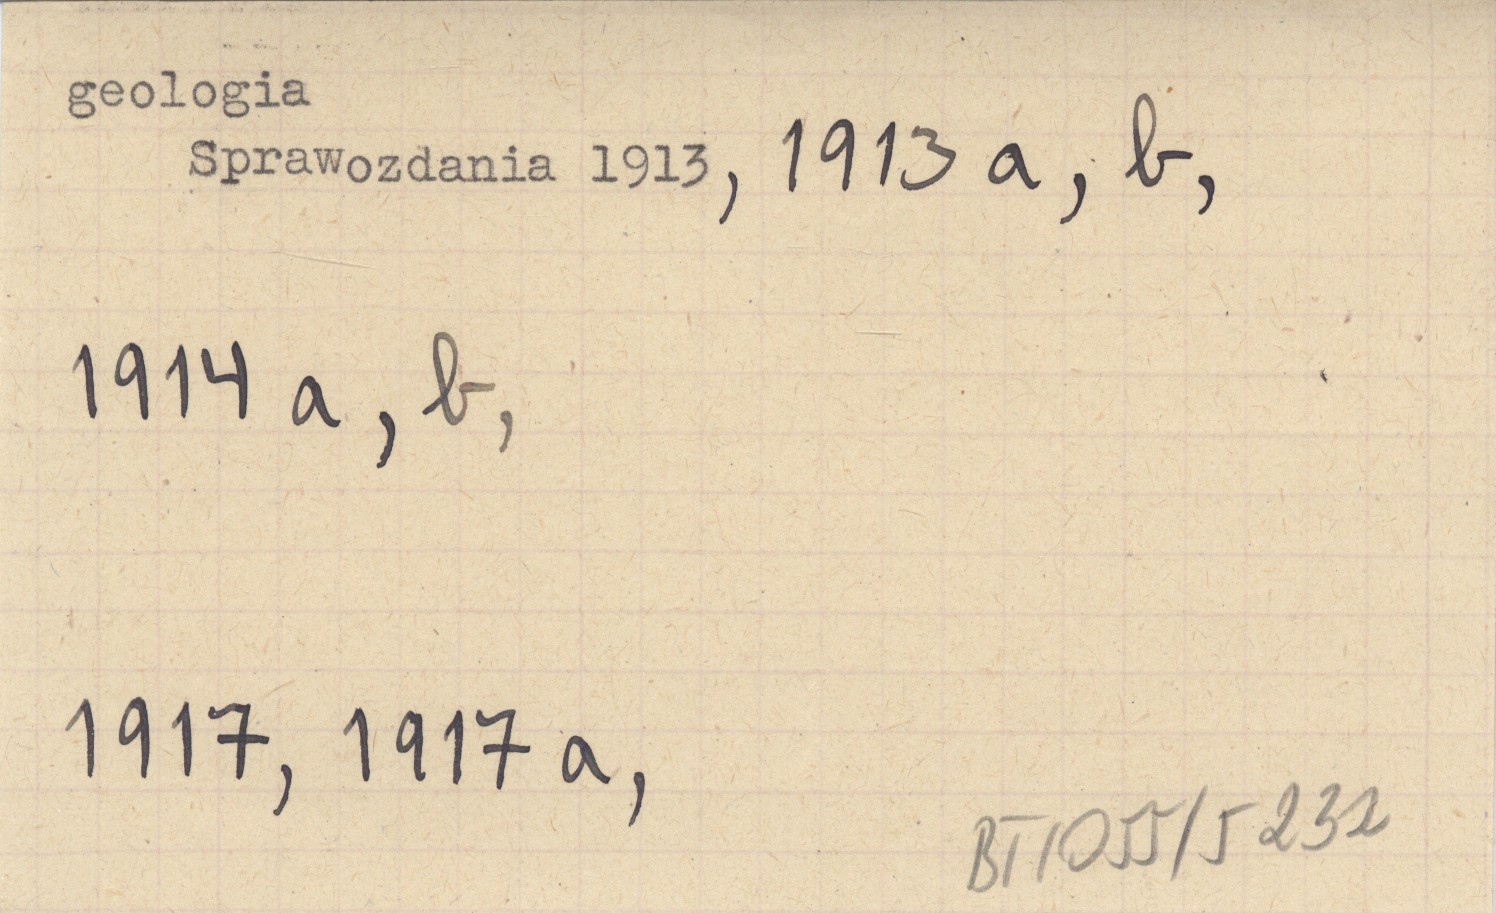 geologia
Sprawozdania 1913, 1913 a, b,
1914 a, b,
1917, 1917 a,
BT1055/5 232